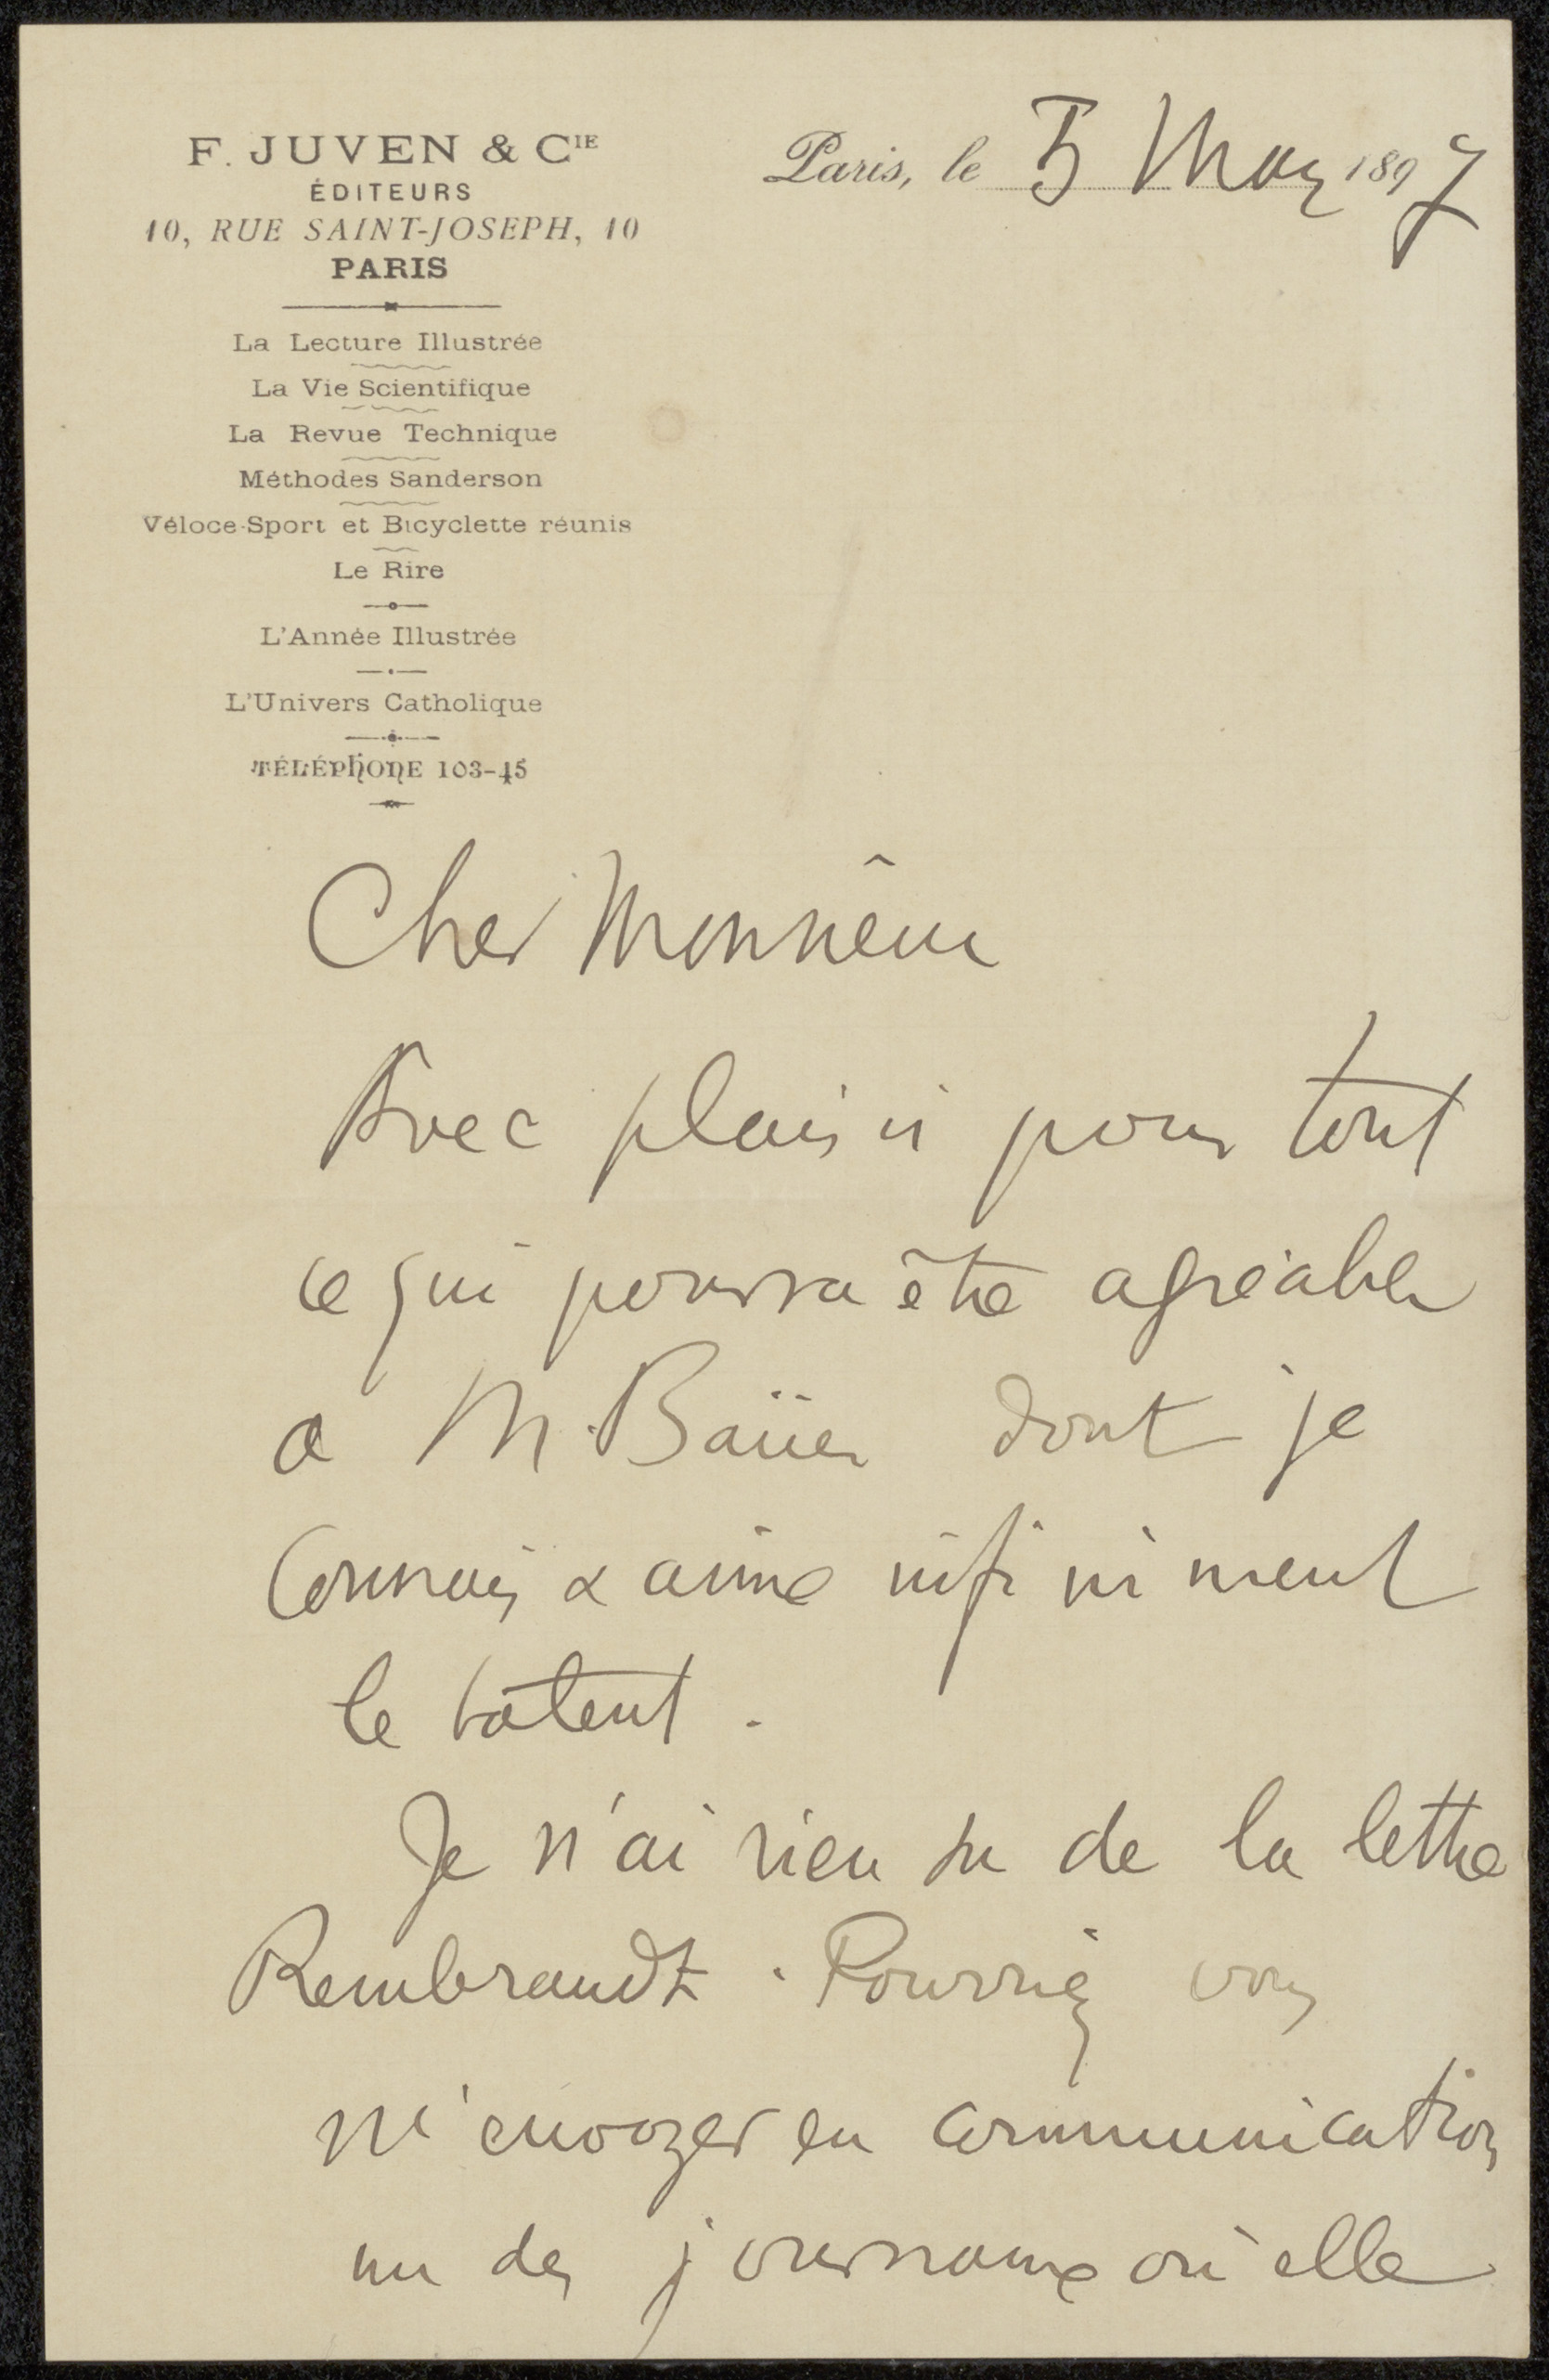 F. JUVEN & CIE
ÉDITEURS
10, RUE SAINT-JOSEPH, 10
PARIS
La Lecture Illustrée
La Vie Scientifique
La Revue Technique
Méthodes Sanderson
Véloce-Sport et Bicyclette réunis
Le Rire
L'Année Illustrée
L'Univers Catholique
TÉLÉPHONE 103-45
Paris, le 5 Mars 1897
Cher Monsieur
Avec plaisir pour tout
ce qui pourra être agréable
a M. Baüer dont je
connais & aime infiniment
le talent.
Je n'ai rien su de la lettre
Rembrandt. Pourriez vous
m'envoyer en communication
un des journaux où elle